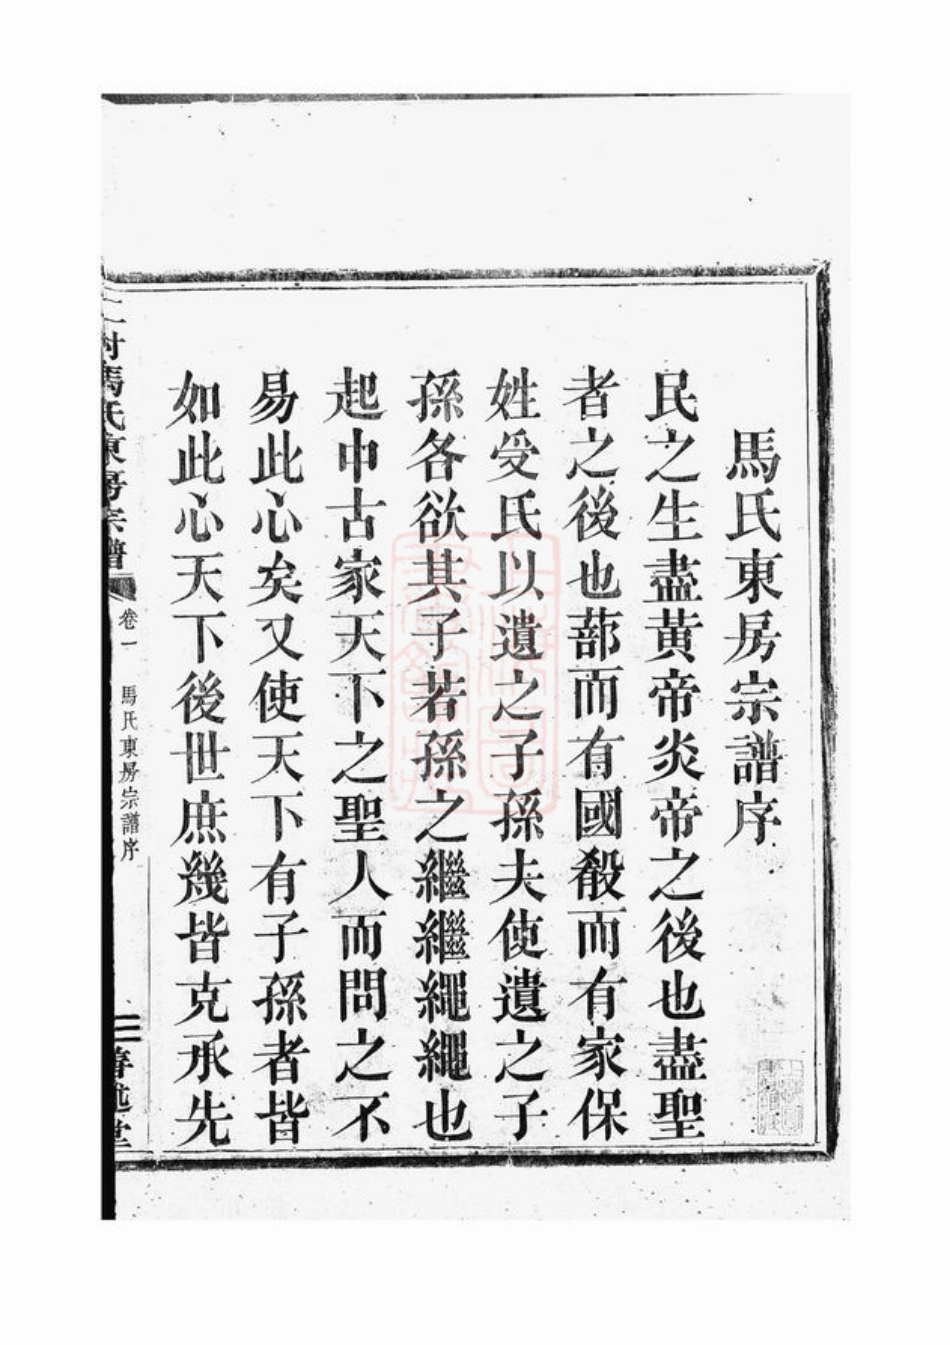 馬氏東房宗譜序
民之生盡黃帝炎帝之後也盡聖
者之後也蔀而有國殽而有家保
姓受氏以遺之子孫夫使遺之子
孫各欲其子若孫之繼繼繩繩也
起中古家天下之聖人而問之不
易此心矣又使天下有子孫者皆
如此心天下後世庶幾皆克承先
馬氏東房宗譜
卷一
馬氏東房宗譜序
二